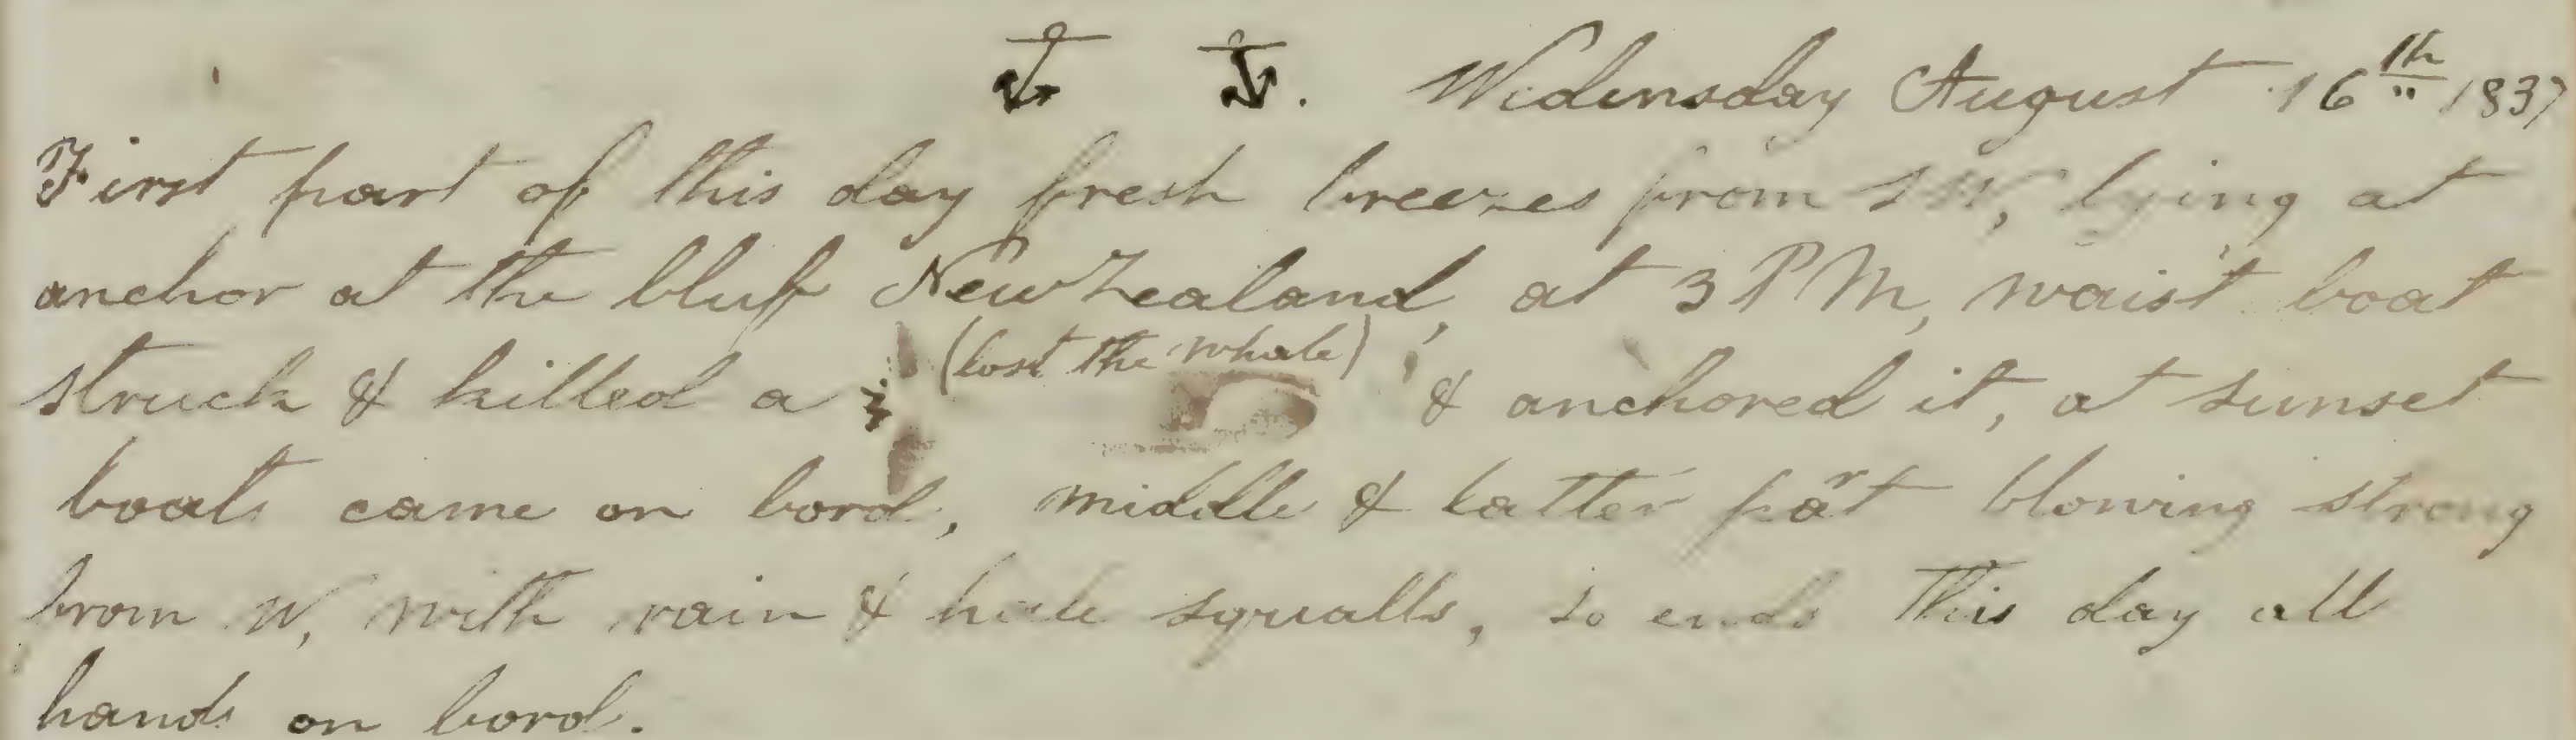 Wedensday August 16th 1837
First part of this day fresh breezes from S W, lying at
anchor at the bluf New Zealand, at 3 P M, waist boat
struck & killed a (lost the whale) & anchored it, at sunset
boats came on bord, middle & latter part blowing strong
from W, with rain & hale squalls, so ends this day all
hands on bord.